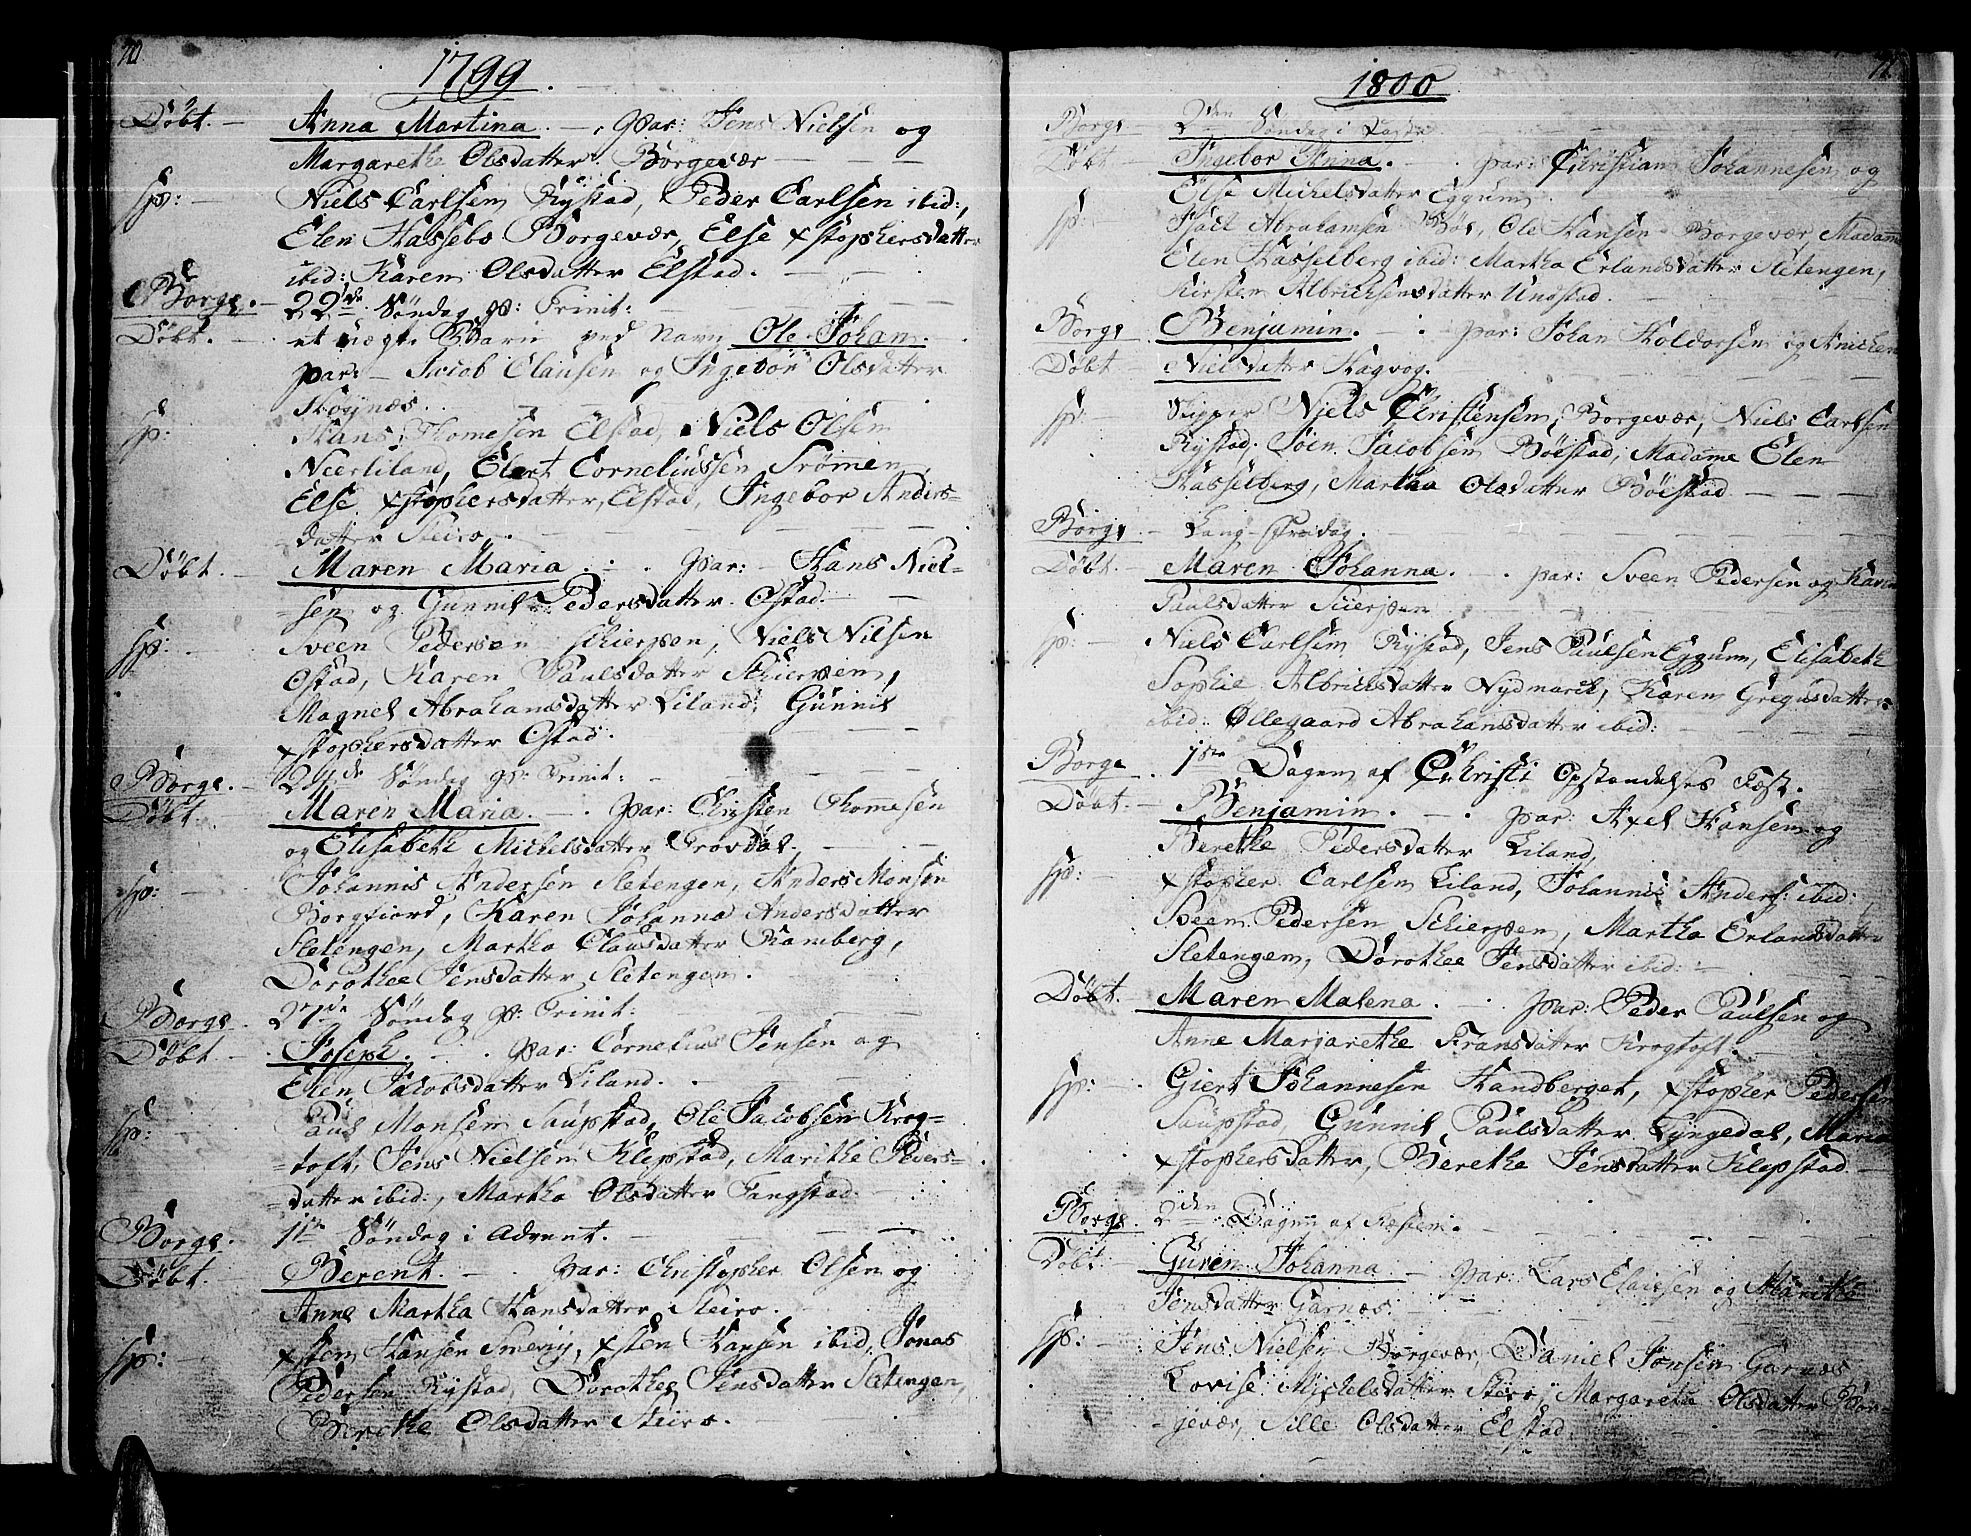 70
1799.
Døbt. - Anna Martina. - par: Jens Nielsen og
Margarethe Olsdatter Borgevær
Sp: - Niels Carlsen Rystad, Peder Carlsen ibid:,
Elen Hassebs Borgevær, Else xstophersdatter
ibid: Karen Olsdatter Elstad.
Borge. - 22de Søndag p: Trinit:
Døbt. et uægte Barn ved Navn Ole Johan.
par: - Jacob Clausen og Ingebor Olsdatter
Skognæs.
Sp: Hans Thomesen Elstad, Niels Olsen
Neerliland, Elert Corneliussen Srømmen,
Else xstophersdatter, Elstad, Ingebor Anders-
datter Steiro.
Døbt. - Maren Maria. par: - Hans Niel-
=sen og Gunnil Pedersdatter Ostad.
Sp: Sveen Pedersen Schierpen, Niels Nilsen
Ostad, Karen Paulsdatter Schierpen,
Magnel Abrahamsdatter Liland, Gunnil
xstophersdatter Ostad.
Borge. - 24de Søndag p: Trinit:
Døbt. Maren Maria. - par: Christen Thomesen
og Elisabeth Michelsdatter Provdal.
Sp: Johannis Andersen Sletengen, Anders Monsen
Borgfiord, Karen Johanna Andersdatter
Sletengen, Martha Clausdatter Ramberg,
Dorothee Jensdatter Sletengen.
Borge. 27de Søndag p: Trinit:
Døbt - Joseph. par: Cornelius Jensen og
Elen Jacobsdatter Liland.
Sp: Paul Monsen Saupstad, Ole Jacobsen Krog=
=toft, Jens Nielsen Klepstad, Marithe Peders=
=datter ibid:, Martha Olsdatter Tangstad.
Borge. 1ste Søndag i Advent.
Døbt. Berent. - par: Christopher Olsen og
Anne Martha Hansdatter Steiro.
Sp: - xsten Hansen Smevig, xsten Hansen ibid, Jonas
Pedersen Rystad, Dorothe Jensdatter Sletengen,
Berethe Olsdatter Steiro.
71
1800
Borge 2den Søndag i Faste
Døbt - Ingebor Anna. par: Christian Johannesen og
Else Michelsdatter Eggum.
Sp: Abrahamsen Bøe, Ole Hansen Borgevær, Madam
Elen Hasselberg ibid: Martha Erlandsdatter Sletengen,
Kirsten Albrichsensdatter Undstad.
Borge Benjamin. - par: Johan Holdorsen og Anichen
Døbt - Nielsdatter Hagvog.
Sp: Skipper Niels Christensen, Borgevær, Niels Carlsen
Rystad, Søen Jacobsen Bøestad, Madame Elen
Hasselberg, Martha Olsdatter Bøestad
Borge - Lang-fredag.
Døbt. - Maren Johanna. par: Sveen Pedersen og Karen
Paulsdatter Scierpen
Sp: - Niels Carlsen Rystad, Jens Paulsen Eggum, Elisabeth
Sophie Albrichsdatter Nydmarck, Karen Gregusdatter
ibid: Ollegaard Abrahamsdatter ibid:
Borge 1ste Dagen af Christi Opstandelses Fæst.
Døbt. - Benjamin. par: Axel Hansen og
Berethe Pedersdatter Liland,
Sp: xstopher Carlsen Liland, Johannis Anders: ibid:
Sveen Pedersen Schierpen, Martha Erlandsdatter
Sletengen, Dorothee Jensdatter ibid:
Døbt. Maren Malena. par: Peder Paulsen og
Anne Marjarethe Fransdatter Krogtoft.
Sp: Giert Johannesen Handberget, xstopher Pedersen
Saupstad, Gunnil Paulsdatter Lyngedal, Maria
xstophersdatter, Berethe Jensdatter Klepstad
Borge. 2den Dagen af Fæsten.
Døbt. Guren Johanna - par: Lars Elaiesen og Marithe
Jensdatter Garnæs
Sp: Jens Nielsen Borgevær, Daniel Jonsen Garnæs
Lovise Michelsdatter Steiro, Margarethe Olsdatter Bor=
=gevær, Sille Olsdatter Elstad.